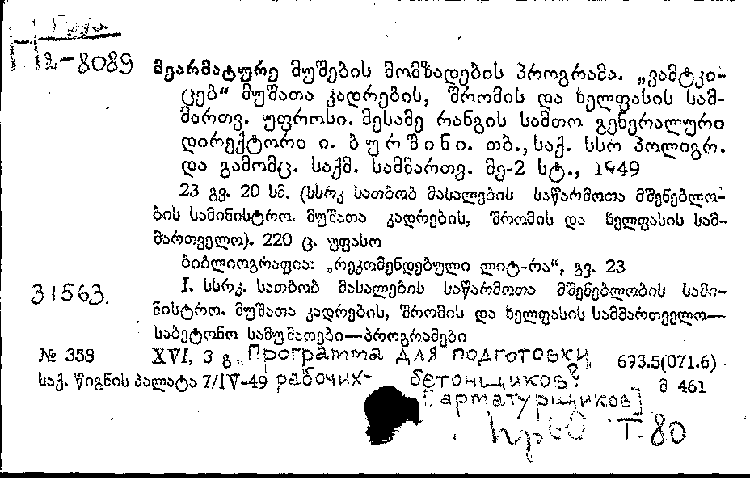 12-8089
მეარმატურე მუშების მომზადების პროგრამა. „ვამტკი-
ცებ“ მუშათა კადრების, შრომის და ხელფასის სამ-
მართვ. უფროსი. მესამე რანგის სამთო გენერალური
დირექტორი ი. ბურშინი. თბ., საქ. სსრ პოლიგრ.
და გამომც. საქმ. სამმართვ. მე-2 სტ., 1949
23 გვ. 20 სმ. (სსრკ სათბობ მასალების საწარმოთა მშენებლო-
ბის სამინისტრო. მუშათა კადრების, შრომის და ხელფასის სამ-
მართველო). 220 ც. უფასო
ბიბლიოგრაფია: „რეკომენდებული ლიტ-რა“, გვ. 23
31563.
I. სსრკ. სათბობ მასალების საწარმოთა მშენებლობის სამი-
ნისტრო. მუშათა კადრების, შრომის და ხელფასის სამმართველო—
საბეტონო სამუშაოები—პროგრამები
№ 359 XVI, 3 გ. Программа для подготовки 693.5(071.6)
საქ. წიგნის პალატა 7/IV-49 рабочих- бетонщиков მ 461
[арматурщиков]
Т-80